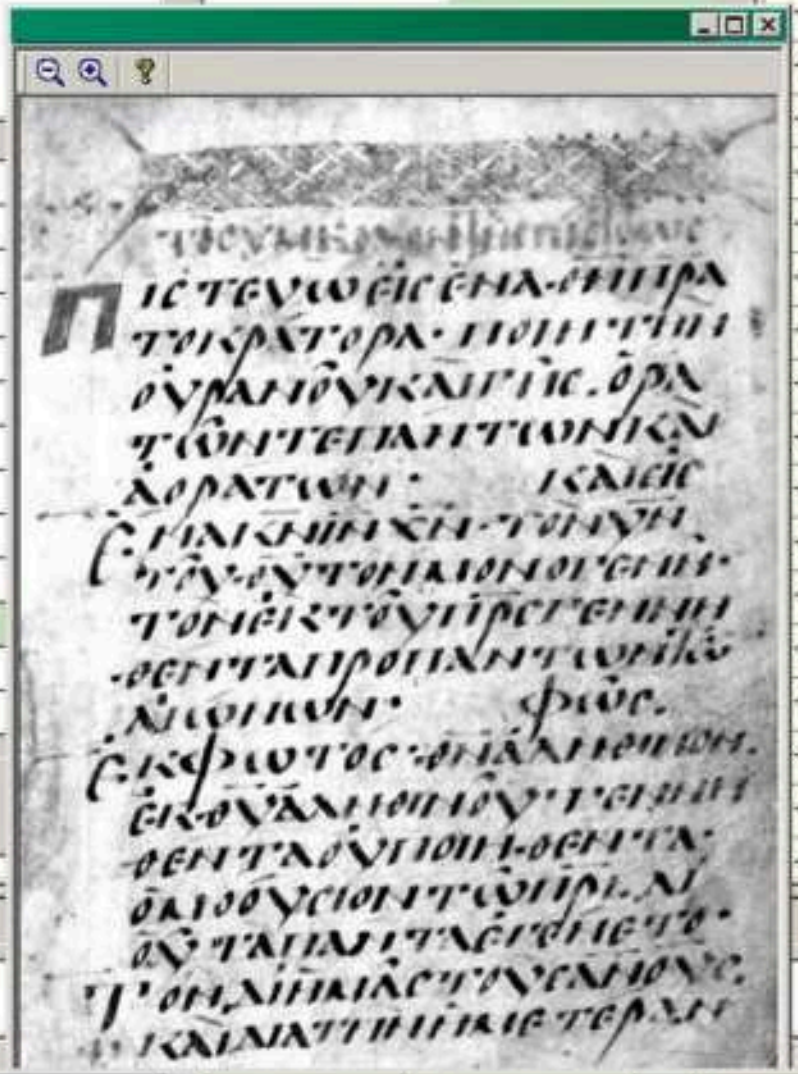 ΠΙCΤΕΥωΕΙCΕΝΑ·ΘΝΠΡΑ
ΤΟΚΡΑΤΟΡΑ· ΠΟΙΗΤΗΝ
ΟΥΡΑΝΟΥΚΑΙΓΗC. ΟΡΑ
ΤωΝΤΕΠΑΝΤωΝΚΑΙ
ΑΟΡΑΤωΝ: ΚΑΙΕΙC
ΕΝΑΚΝΙΝΧΝ·ΤΟΝΥΝ
ΤΟΥΘΥΤΟΝΜΟΝΟΓΕΝΗ·
ΤΟΝΕΚΤΟΥΠΡCΓΕΝΝΗ
ΘΕΝΤΑΠΡΟΠΑΝΤωΝ
ΑΙωΝωΝ· ΦωC.
ΕΚΦωΤΟC·ΘΝΑΛΗΘΙΝΟΝ.
ΕΚΘΥΑΛΗΘΙΝΟΥ·ΓΕΝΝΗ
ΘΕΝΤΑΟΥΠΟΙΗΘΕΝΤΑ·
ΟΜΟΟΥCΙΟΝΤωΠΡΙ. ΔΙ
ΟΥΤΑΠΑΝΤΑΕΓΕΝΕΤΟ·
ΤΟΝΔΙΗΜΑCΤΟΥCΑΝΟΥC.
ΚΑΙΔΙΑΤΗΝΗΜΕΤΕΡΑΝ